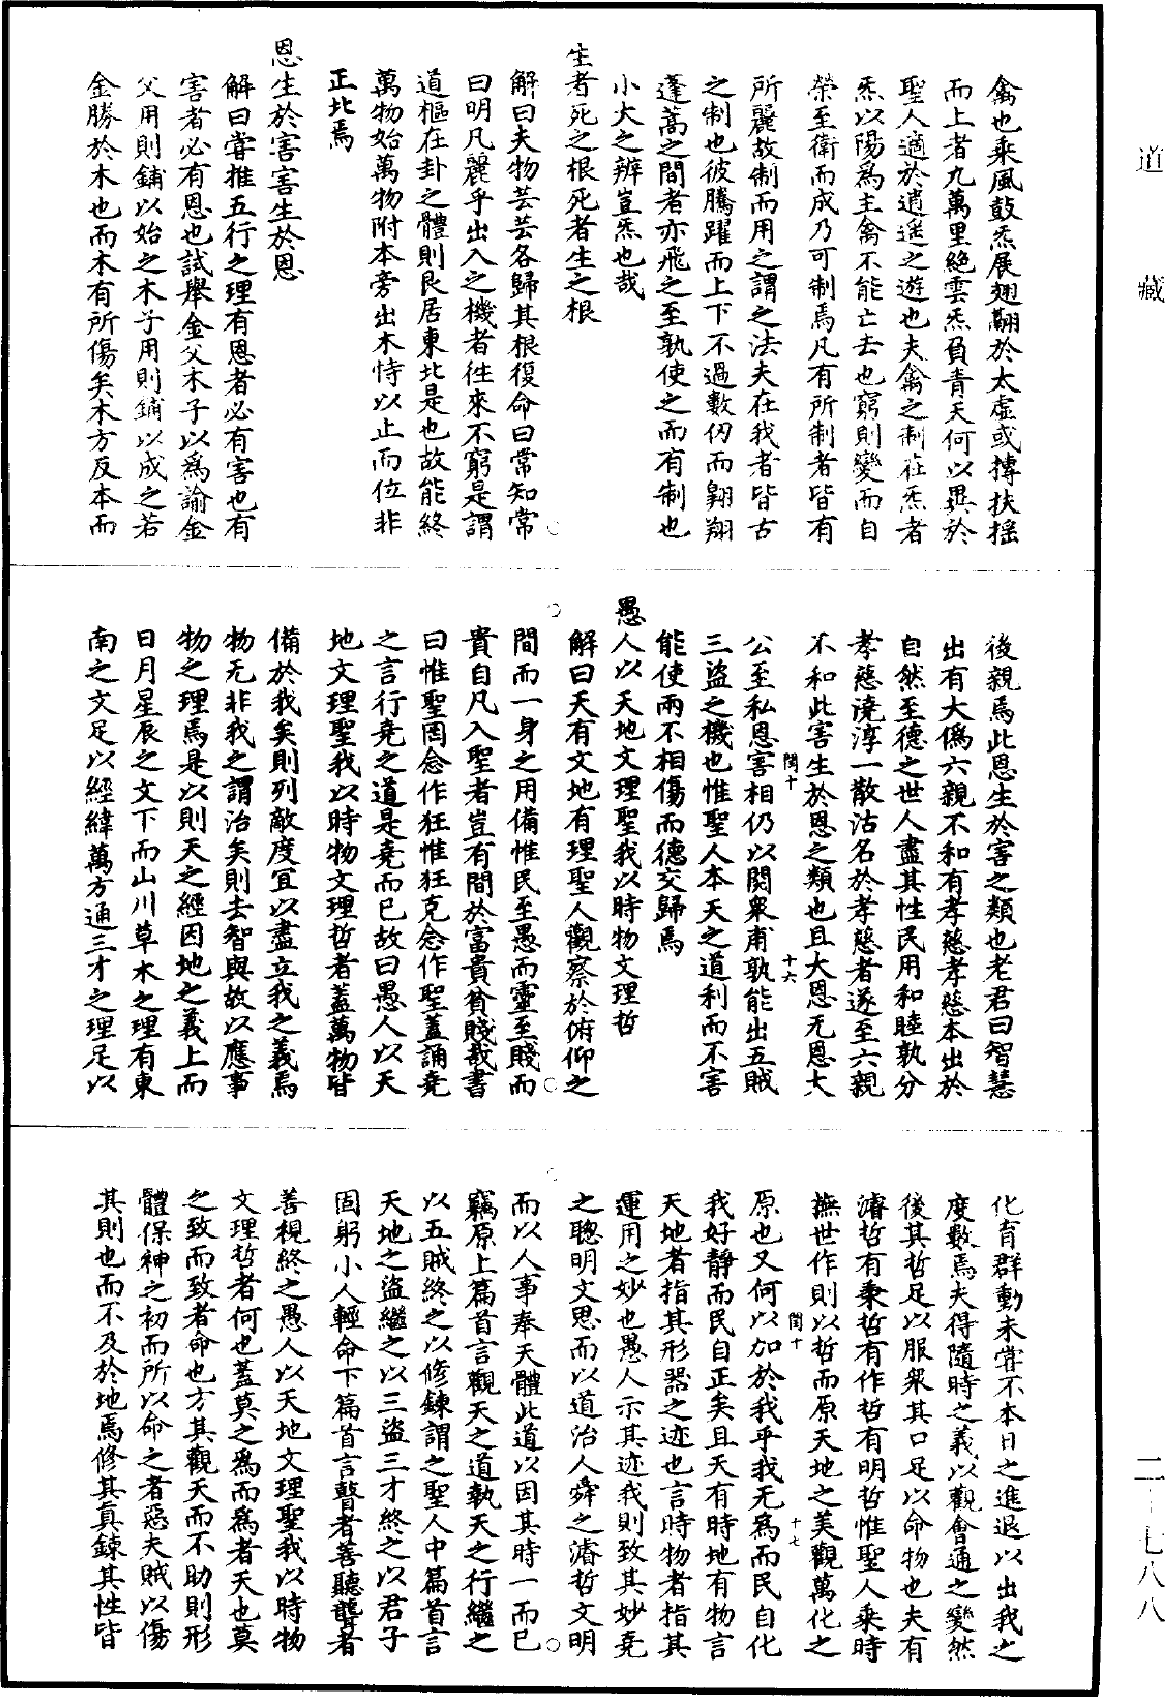 道藏
禽也乘風鼓炁展翅翮於太虛或摶扶摇
而上者九萬里絕雲炁負青天何以異於
聖人適於逍遥之遊也夫禽之制在炁者
炁以陽為主禽不能亡去也窮則變而自
榮至衛而成乃可制焉凡有所制者皆有
所麗故制而用之謂之法夫在我者皆古
之制也彼騰躍而上下不過數仞而翱翔
蓬蒿之間者亦飛之至孰使之而有制也
小大之辨豈炁也哉
生者死之根死者生之根
解曰夫物芸芸各歸其根復命曰常知常
曰明凡麗乎出入之機者往來不窮是謂
道樞在卦之體則艮居東北是也故能終
萬物始萬物附本旁出木恃以止而位非
正北焉
恩生於害害生於恩
解曰嘗推五行之理有恩者必有害也有
害者必有恩也試舉金父木子以為諭金
父用則鋪以始之木子用則鋪以成之若
金勝於木也而木有所傷矣木方反本而
後親焉此恩生於害之類也老君曰智慧
出有大偽六親不和有孝慈孝慈本出於
自然至德之世人盡其性民用和睦孰分
孝慈澆淳一散沽名於孝慈者遂至六親
不和此害生於恩之類也且大恩无恩大
閏十 十六
公至私恩害相仍以閱衆甫孰能出五賊
三盜之機也惟聖人本天之道利而不害
能使兩不相傷而德交歸焉
愚人以天地文理聖我以時物文理哲
解曰天有文地有理聖人觀察於俯仰之
間而一身之用備惟民至愚而靈至賤而
貴自凡入聖者豈有間於富貴貧賤哉書
曰惟聖罔念作狂惟狂克念作聖蓋誦堯
之言行堯之道是堯而已故曰愚人以天
地文理聖我以時物文理哲者蓋萬物皆
備於我矣則列敵度宜以盡立我之義焉
物无非我之謂治矣則去智與故以應事
物之理焉是以則天之經因地之義上而
日月星辰之文下而山川草木之理有東
南之文足以經緯萬方通三才之理足以
化育群動未嘗不本日之進退以出我之
度數焉夫得隨時之義以觀會通之變然
後其哲足以服衆其口足以命物也夫有
濬哲有秉哲有作哲有明哲惟聖人乘時
撫世作則以哲而原天地之美觀萬化之
閏十 十七
原也又何以加於我乎我无為而民自化
我好靜而民自正矣且天有時地有物言
天地者指其形器之迹也言時物者指其
運用之妙也愚人示其迹我則致其妙堯
之聰明文思而以道治人舜之濬哲文明
而以人事奉天體此道以因其時一而已
竊原上篇首言觀天之道執天之行繼之
以五賊終之以修鍊謂之聖人中篇首言
天地之盜繼之以三盜三才終之以君子
固躬小人輕命下篇首言瞽者善聽聾者
善視終之愚人以天地文理聖我以時物
文理哲者何也蓋莫之為而為者天也莫
之致而致者命也方其觀天而不助則形
體保神之初而所以命之者惡夫賊以傷
其則也而不及於地焉修其真鍊其性皆
二一七八八